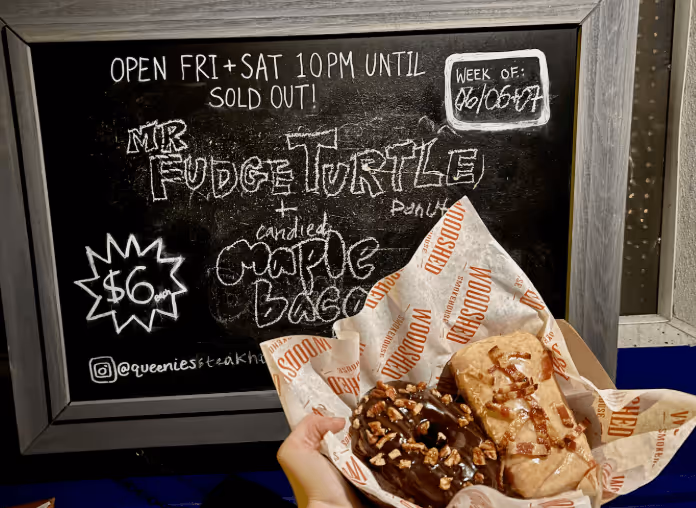 OPEN FRI + SAT 10PM UNTIL
SOLD OUT!
WEEK OF:
06/06+07
MR
FUDGE TURTLE
Donut
+
candied
maple
baco
$6
@queeniessteakh
WOODSHED
SMOKEHOUSE
WOODSHED
SMOKEHOUSE
WOODSHED
WOODSHED